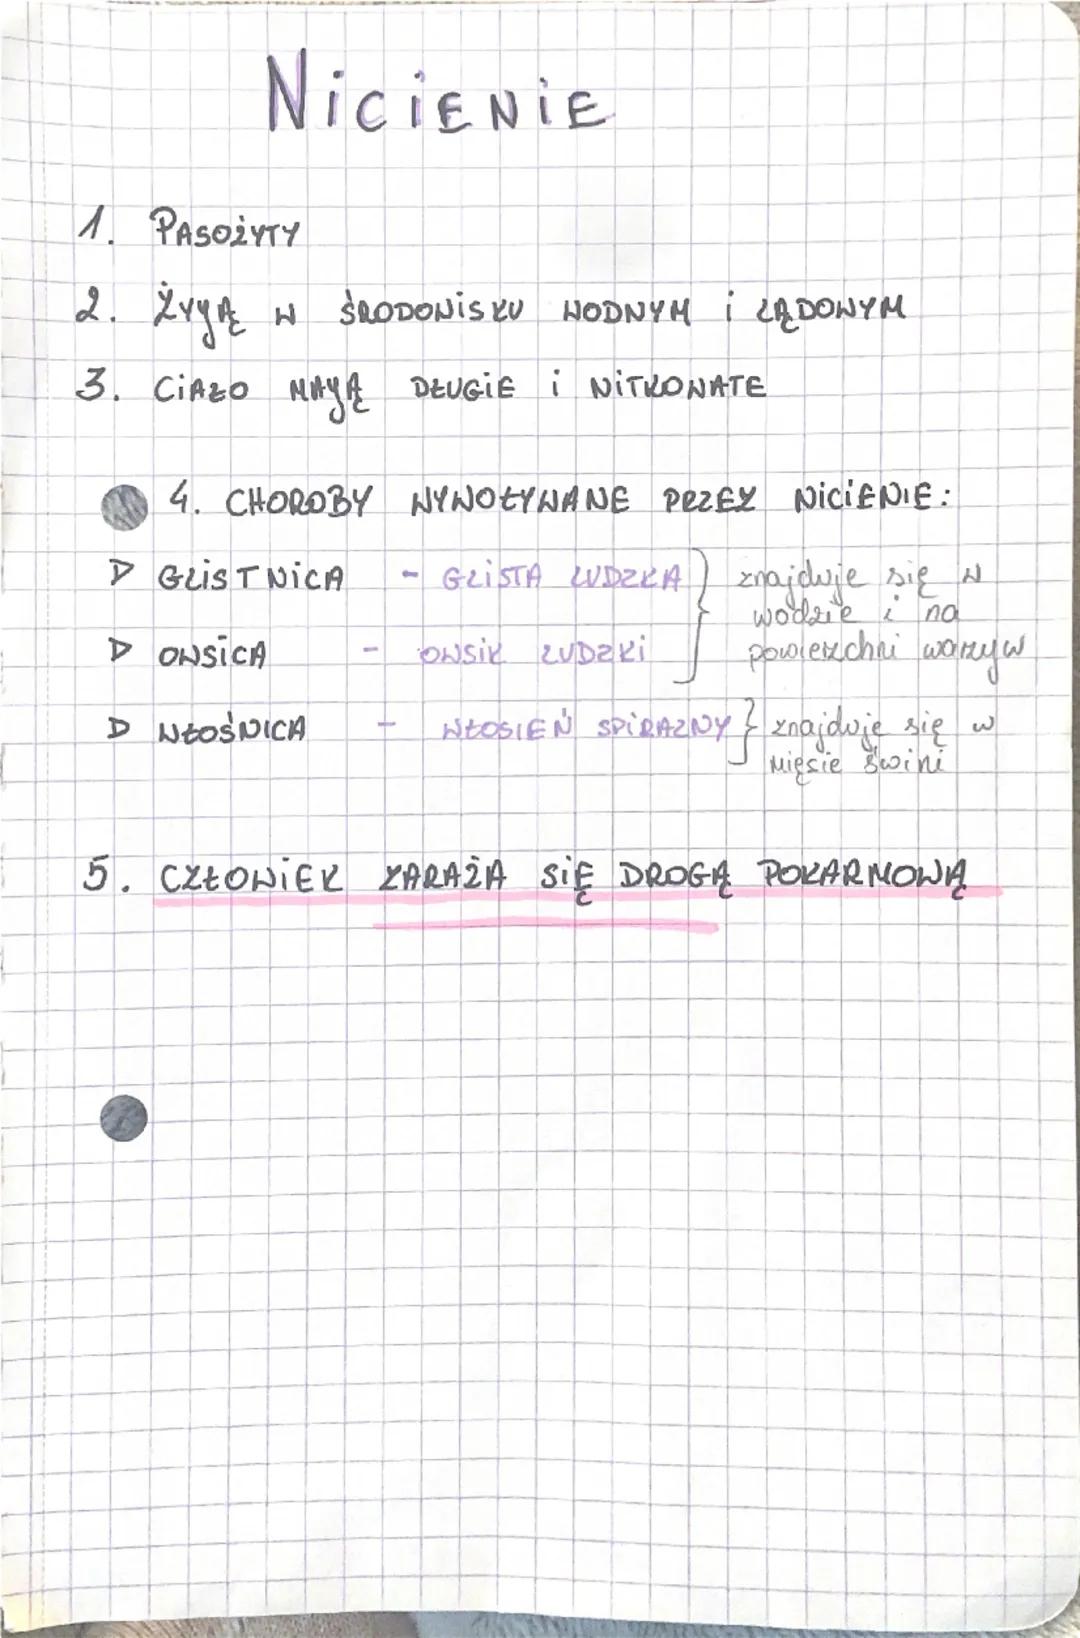 NICIENIE
1. PASOŻYTY
2. ŻYJĄ W ŚRODOWISKU WODNYM I LĄDOWYM
3. CIAŁO MAJĄ DŁUGIE I NITKOWATE
4. CHOROBY WYWOŁYWANE PRZEZ NICIENIE:
▷ GLISTNICA - GLISTA LUDZKA } znajduje się w
wodzie i na
▷ OWSICA - OWSIK LUDZKI powierzchni warzyw
▷ WŁOŚNICA - WŁOSIEŃ SPIRALNY } znajduje się w
mięsie świni
5. CZŁOWIEK ZARAŻA SIĘ DROGĄ POKARMOWĄ